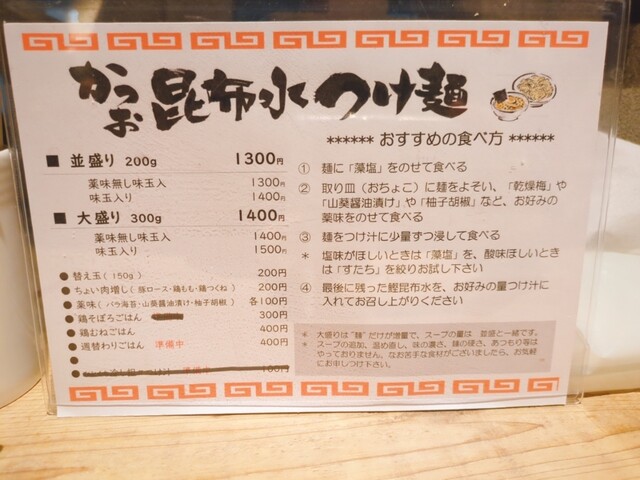 かつお昆布水つけ麺
■ 並盛り 200g 1300円
薬味無し味玉入 1300円
味玉入り 1400円
■ 大盛り 300g 1400円
薬味無し味玉入 1400円
味玉入り 1500円
● 替え玉(150g) 200円
● ちょい肉増し(豚ロース・鶏もも・鶏つくね) 200円
● 薬味(バラ海苔・山葵醤油漬け・柚子胡椒) 各100円
● 鶏そぼろごはん 300円
● 鶏むねごはん 400円
● 週替わりごはん 準備中 400円
●
●
****** おすすめの食べ方 ******
① 麺に「藻塩」をのせて食べる
② 取り皿(おちょこ)に麺をよそい、「乾燥梅」や
「山葵醤油漬け」や「柚子胡椒」など、お好みの
薬味をのせて食べる
③ 麺をつけ汁に少量ずつ浸して食べる
* 塩味がほしいときは「藻塩」を、酸味ほしいとき
は「すだち」を絞りお試し下さい
④ 最後に残った鰹昆布水を、お好みの量つけ汁に
入れてお召し上がりください
* 大盛りは"麺"だけが増量で、スープの量は 並盛と一緒です。
* スープの追加、温め直し、味の濃さ、麺の硬さ、あつもり等は
やっておりません。なお苦手な食材がございましたら、お気軽
にお申しつけ下さい。